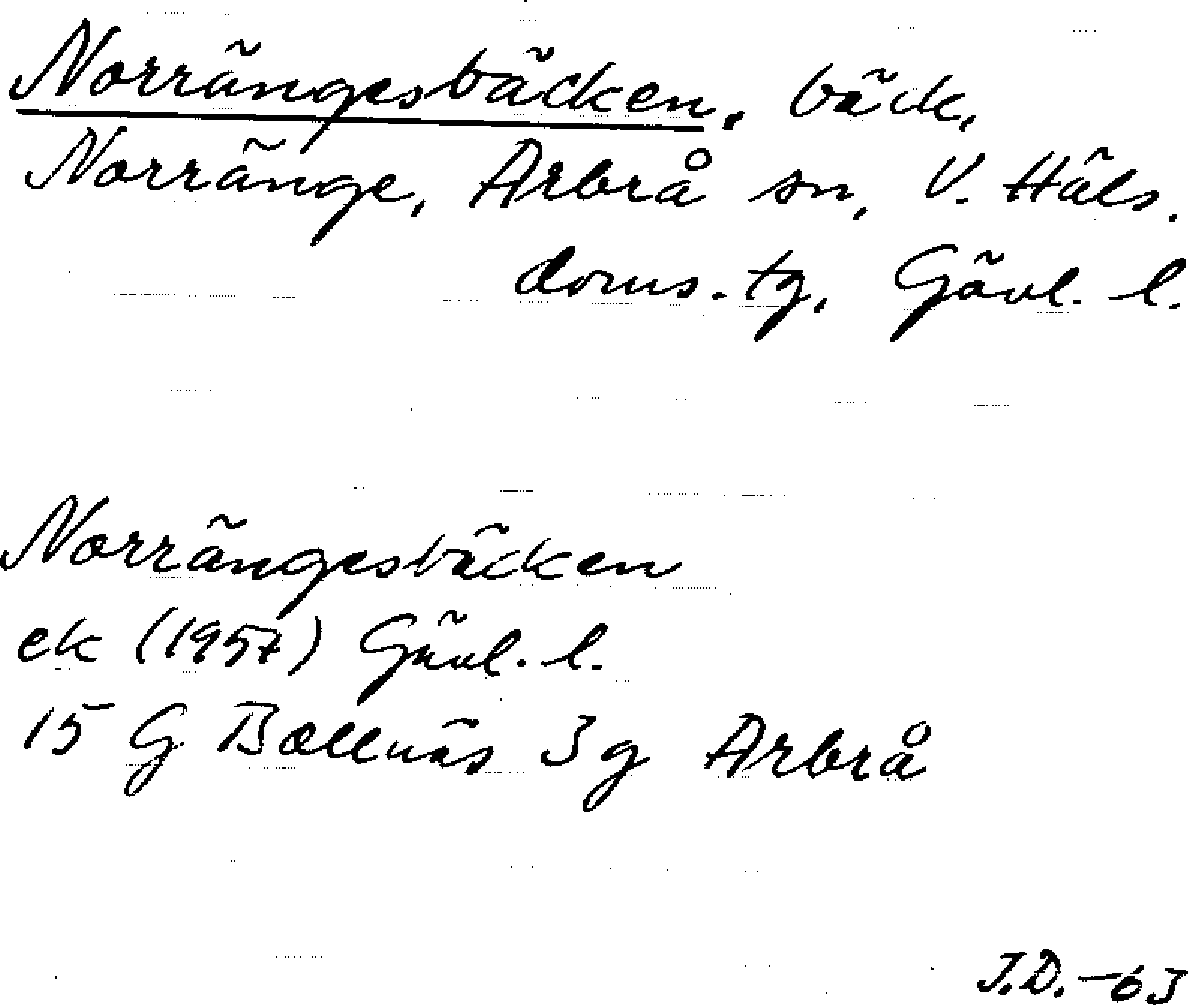 Norrängesbäcken, bäck,
Norränge, Arbrå sn, V. Häls.
doms. tg, Gävl. l.
Norrängesbäcken
ek (1957) Gävl. l.
15 G Bollnäs 3 g Arbrå
J.D. -63